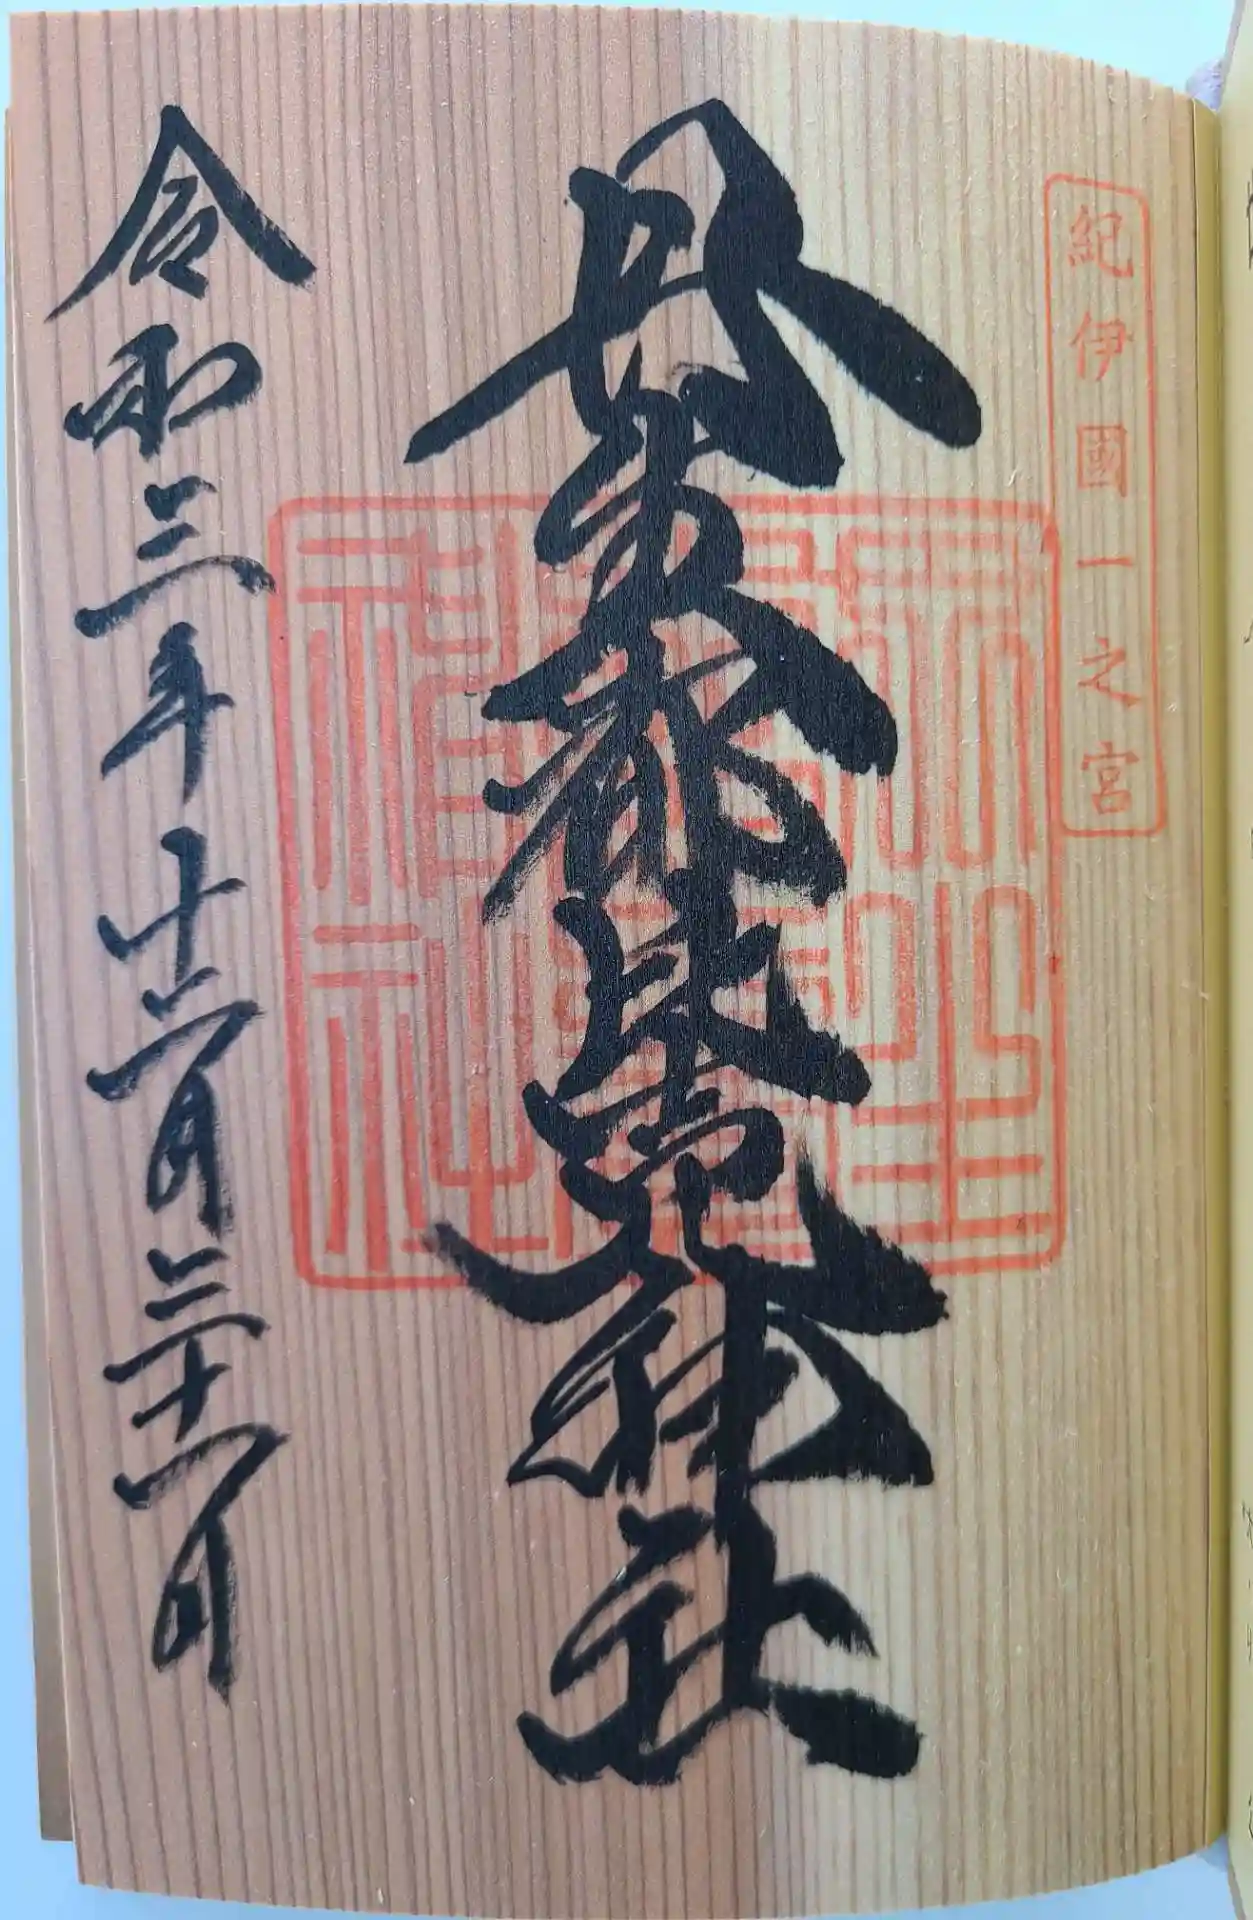 紀伊國一之宮
丹生都比売神社
令和三年十二月二十二日